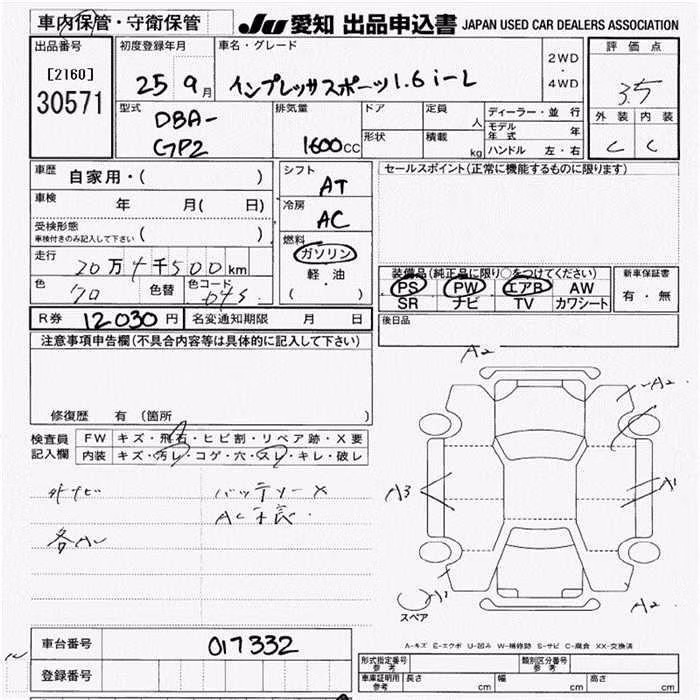 車内保管・守衛保管
JU 愛知 出品申込書 JAPAN USED CAR DEALERS ASSOCIATION
出品番号 初度登録年月 車名・グレード 2WD・4WD 評価点
[2160]
30571
25 9月 インプレッサスポーツ1.6i-L
3.5
型式 排気量 ドア 定員 人 ディーラー・並行 外装 内装
DBA-
GP2
1600cc
形状 積載 kg モデル年式 年
ハンドル 左・右
C C
車歴 自家用・( )
シフト AT
セールスポイント(正常に機能するものに限ります)
車検 年 月( 日)
冷房 AC
受検形態 車検付きのみ記入して下さい ( )
燃料 ガソリン
軽油
( )
走行 20万 千500km
色 70 色替 色コード
装備品(純正品に限り○をつけてください) 新車保証書
PS PW エアB AW 有・無
SR ナビ TV カワシート
R券 12030円 名変通知期限 月 日
後日品
注意事項申告欄(不具合内容等は具体的に記入して下さい)
修復歴 有 (箇所 )
検査員記入欄 FW キズ・飛石・ヒビ割・リペア跡・X要
内装 キズ・汚レ・コゲ・穴・スレ・キレ・破レ
外ナビ バッテリーX
AC不良.
各A
A2
A2
A3
A1
A1
A2
スペア
A-キズ E-エクボ U-凹み W-補修跡 S-サビ C-腐食 XX-交換済
車台番号 017332
登録番号
型式指定番号 参考 類別区分番号 参考
車庫証明用 参考 長さ cm 幅 cm 高さ cm